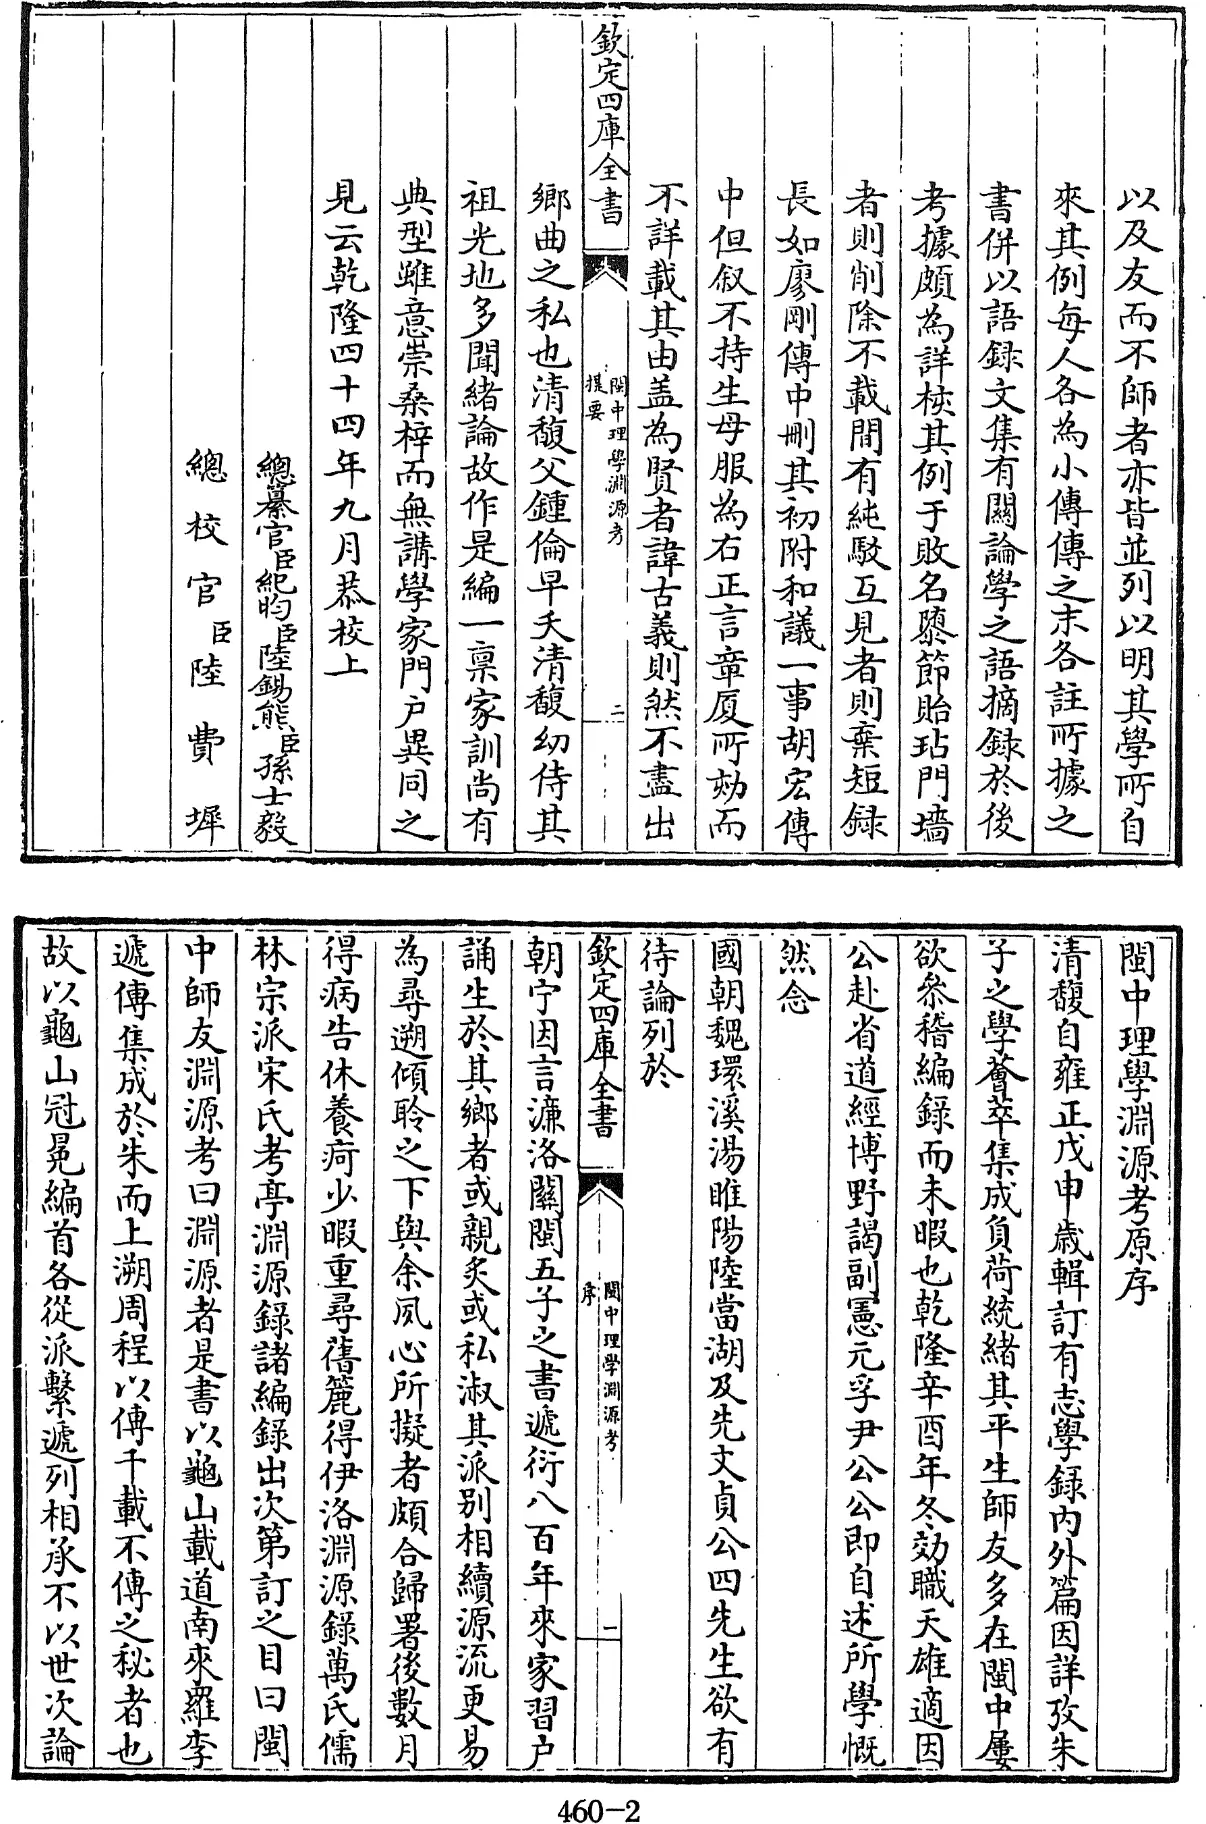 以及友而不師者亦皆並列以明其學所自
來其例每人各為小傳傳之末各註所據之
書併以語録文集有闗論學之語摘録於後
考據頗為詳核其例于敗名隳節貽玷門墻
者則削除不載間有純駁互見者則棄短録
長如廖剛傳中刪其初附和議一事胡宏傳
中但叙不持生母服為右正言章厦所劾而
不詳載其由盖為賢者諱古義則然不盡出
欽定四庫全書
閩中理學淵源考
提要
二
鄉曲之私也清馥父鍾倫早夭清馥幼侍其
祖光地多聞緒論故作是編一禀家訓尚有
典型雖意崇桑梓而無講學家門户異同之
見云乾隆四十四年九月恭校上
總纂官臣紀昀臣陸錫熊臣孫士毅
總校官臣陸費墀
閩中理學淵源考原序
清馥自雍正戊申歲輯訂有志學録内外篇因詳攷朱
子之學薈萃集成負荷統緒其平生師友多在閩中屢
欲叅稽編錄而未暇也乾隆辛酉年冬効職天雄適因
公赴省道經博野謁副憲元孚尹公公即自述所學慨
然念
國朝魏環溪湯睢陽陸當湖及先文貞公四先生欲有
待論列於
欽定四庫全書
閩中理學淵源考
序
一
朝宁因言濂洛關閩五子之書遞衍八百年來家習户
誦生於其鄉者或親炙或私淑其派别相續源流更易
為尋遡傾聆之下與余夙心所擬者頗合歸署後數月
得病告休養疴少暇重尋舊簏得伊洛淵源錄萬氏儒
林宗派宋氏考亭淵源錄諸編錄出次第訂之目曰閩
中師友淵源考曰淵源者是書以龜山載道南來羅李
遞傳集成於朱而上溯周程以傳千載不傳之秘者也
故以龜山冠冕編首各從派繫遞列相承不以世次論
460-2